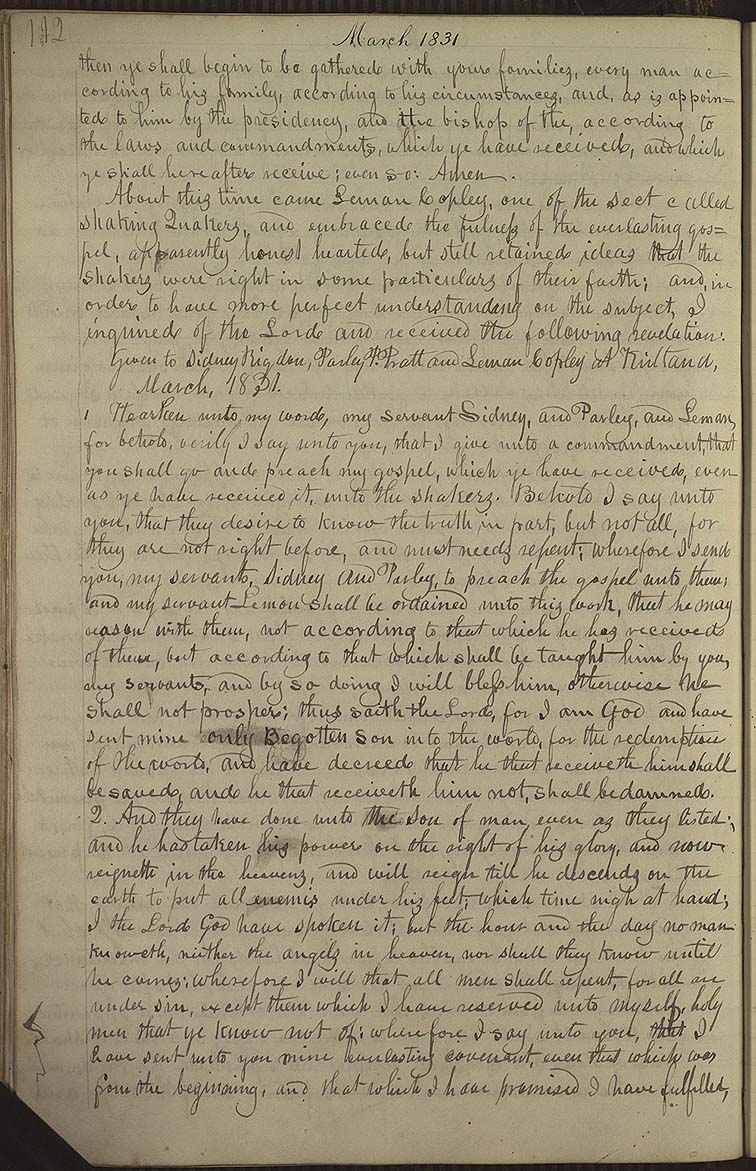 112
March 1831
then ye shall begin to be gathered with youre families, every man ac=
cording to his family, according to his circumstances, and, as is appoin=
ted to him by the presidency, and the bishop of the, according to
the laws and commandments, which ye have received, and which
ye shall hereafter receive; even so: Amen.
About this time came Leman Copley, one of the sect called
shaking Quakers, and embraced the fulness of the everlasting gos=
pel, apparently honest hearted, but still retained ideas that the
shakers were right in some particulars of their faith; and, in
order to have more perfect understanding on the subject, I
inquired of the Lord and received the following revelation:
Given to Sidney Rigdon, Parley P. Pratt and Leman Copley at Kirtland,
March, 1831.
1 Hearken unto my word, my servant Sidney, and Parley, and Leman,
for behold, verily I say unto you, that I give unto a commandment, that
you shall go and preach my gospel, which ye have received, even
as ye have received it, unto the shakers. Behold I say unto
you, that they desire to know the truth in part, but not all, for
they are not right before, and must needs repent; wherefore I send
you, my servants, Sidney and Parley, to preach the gospel unto them;
and my servant Lemon shall be ordained unto this work, that he may
reason with them, not according to that which he has received
of them, but according to that which shall be taught him by you,
my servants, and by so doing I will bless him, otherwise he
shall not prosper; thus saith the Lord, for I am God and have
sent mine only Begotten Son into the world, for the redemption
of the world, and have decreed that he that receiveth him shall
be saved, and he that receiveth him not, shall be damned.
2. And they have done unto the Son of man, even as they listed;
and he has taken his power on the right of his glory, and now
reigneth in the heavens, and will reign till he descends on the
earth to put all enemis under his feet; which time nigh at hand;
I the Lord God have spoken it; but the hour and the day no man
knoweth, neither the angels in heaven, nor shall they know until
he comes; wherefore I will that all men shall repent, for all are
under sin, except them which I have reserved unto myself, holy
men that ye know not of; wherefore I say unto you, that I
have sent unto you mine everlasting covenant, even that which was
from the beginning, and that which I have promised I have fulfilled,